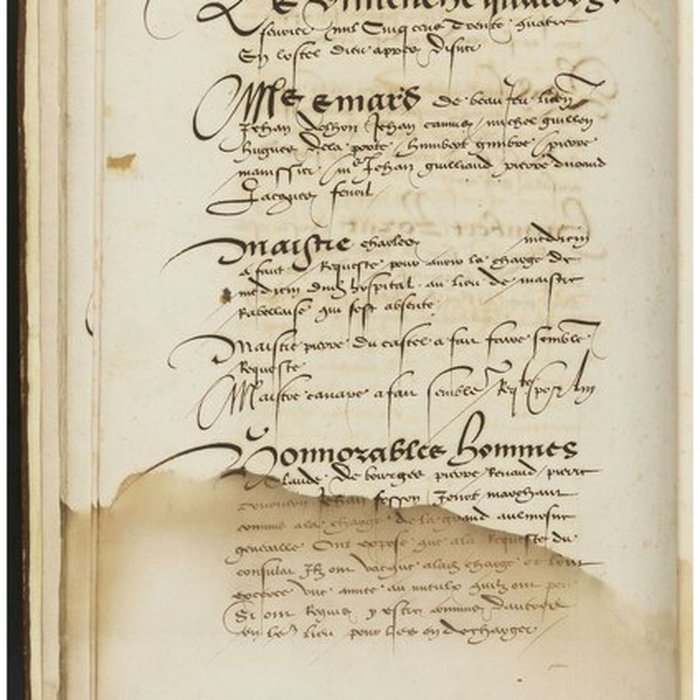 Le Dimenche quatorze
fevrier mil Cinq cens Trente quatre
En lostel dieu appres disner
Mrs Esmard de beaujeu
Jehan deshon Jehan camus michel guillen
hugues dela porte humbert gimbre pierre
manissier me Jehan guilliaud pierre durand
Jacques fenoil
Maistre charles medecin
a faict Requeste pour avoir la charge de
medecin dud hospital au lieu de maistre
Rabellaise qui sest absente
Maistre pierre du castel a fait faire semble
Requeste
Maistre canape a fait semble Reqte por luy
Honnorables hommes
Claude de bourges pierre Renaud pierre
Jehan fesson marchant
commis ala charge de la grand aulmosne
generalle Ont expose que ala Requeste du
consulat Ilz ont vacque alad charge et
exercee une annee au mieulx quilz ont peu
Si ont Requis y estre commis dautres
en leur lieu pour les en descharger